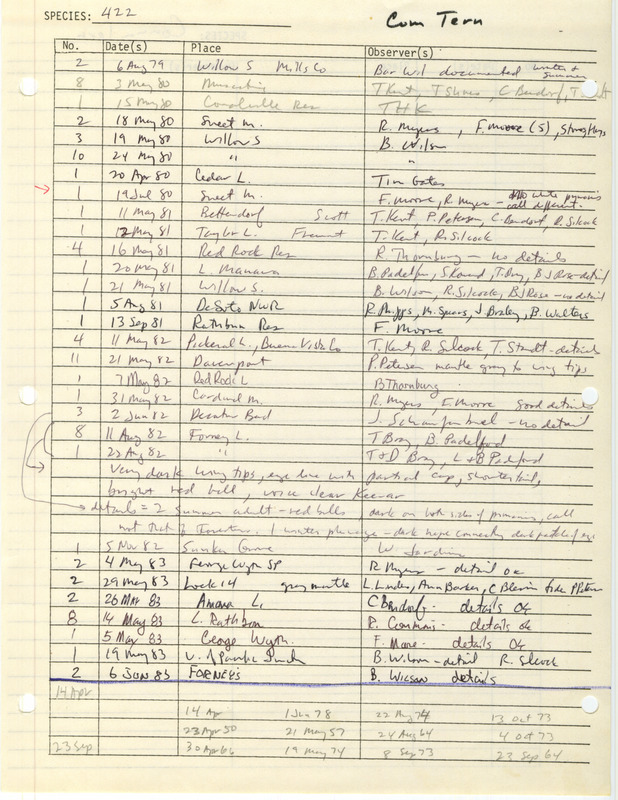 SPECIES: 422 Com Tern
No. Date(s) Place Observer(s)
2 6 Aug 79 Willow S Mills Co Bar Wil documented winter & summer
8 3 May 80 Muscatine T Kent, T Shires, C Bendorf, T
1 15 May 80 Coralville Res THK
2 18 May 80 Sweet M. R. Myers, F. Moore (S),
3 19 May 80 Willow S B. Wilson
10 24 May 80 " "
1 20 Apr 80 Cedar L. Tim Gates
1 19 Jul 80 Sweet M. F. Moore, R. Myers - white primaries call different
1 11 May 81 Bettendorf Scott T. Kent, P. Petersen, C. Bendorf, R. Silcock
1 12 May 81 Taylor L. Fremont T. Kent, R. Silcock
4 16 May 81 Red Rock Res R. Thornburg - no details
1 20 May 81 L. Manawa B. Padelford, T. Bray, B J Rose - detail
1 21 May 81 Willow S. B. Wilson, R. Silcock, BJ Rose - no detail
1 5 Aug 81 DeSoto NWR R. Phipps, M. Spears, J. Braley, B. Walters
1 13 Sep 81 Rathbun Res F. Moore
4 11 May 82 Pickerel L., Buena Vista Co T. Kent, R. Silcock, T. Staudt - details
11 21 May 82 Davenport P. Petersen mantle gray to wing tips
1 7 May 82 Red Rock L B Thornburg
1 31 May 82 Cardinal M. R. Myers, F. Moore good details
3 2 Jun 82 Decatur Bad J. Schaufenbuel - no detail
8 11 Aug 82 Forney L. T Bray, B. Padelford
1 22 Aug 82 " T & D Bray, L & B Padelford
Very dark wing tips, eye line with partial cap, shorter tail,
bright red bill, voice clear Kee-ar
details = 2 summer adult - red bills, dark on both sides of primaries, call
not that of Forster's. 1 winter plumage - dark nape connects dark patch of eye
1 5 Nov 82 Sunken Grove W Jardine
2 4 May 83 George Wyth SP R Myers - detail ok
2 29 May 83 Lock 14 gray mantle L. Linder, Ann Barker, C Blevin fide P Petersen
2 26 Mar 83 Amana L. C Bendorf - details OK
8 14 May 83 L. Rathbun R. Cecil - details ok
1 5 May 83 George Wyth. F. Moore - details OK
1 19 May 83 B. Wilson - detail R. Silcock
2 6 JUN 83 FORNEYS B. WILSON details
14 Apr
14 Apr 1 Jun 78 22 Aug 74 13 Oct 73
23 Apr 50 21 May 57 24 Aug 64 4 Oct 73
23 Sep 30 Apr 66 19 May 74 8 Sep 73 23 Sep 64